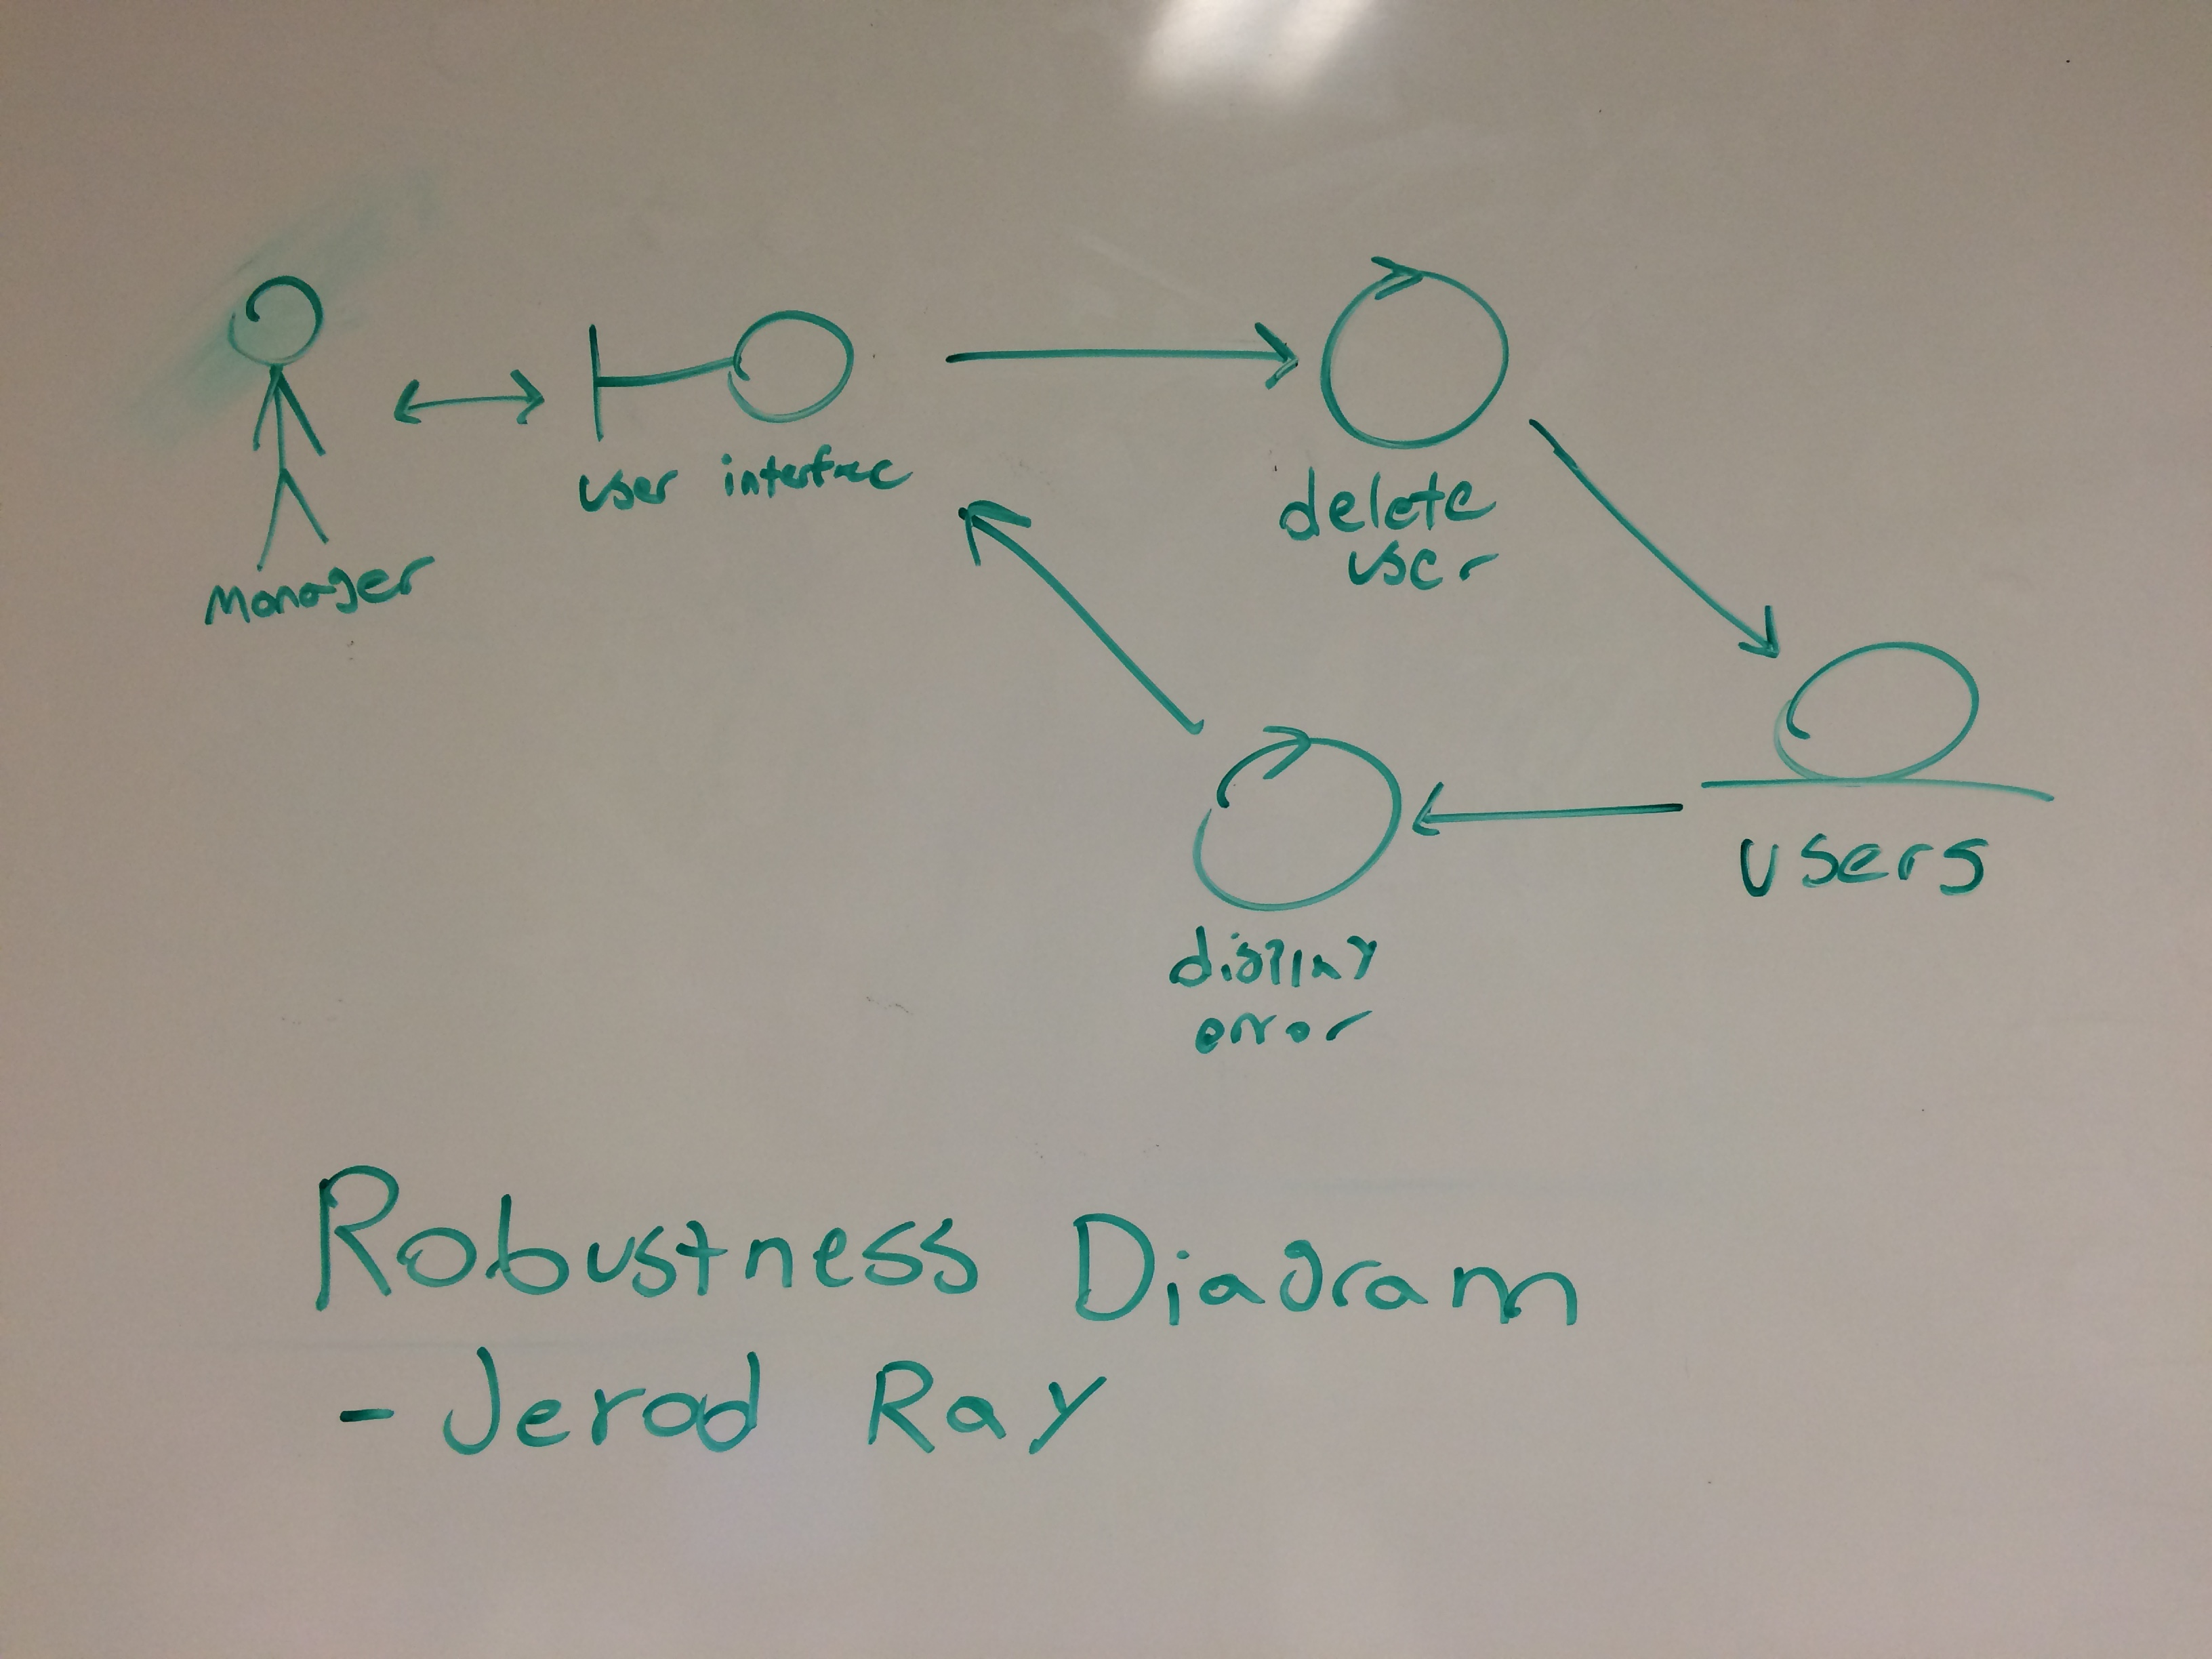 user interface
delete
user
Manager
users
display
error
Robustness Diagram
- Jerod Ray